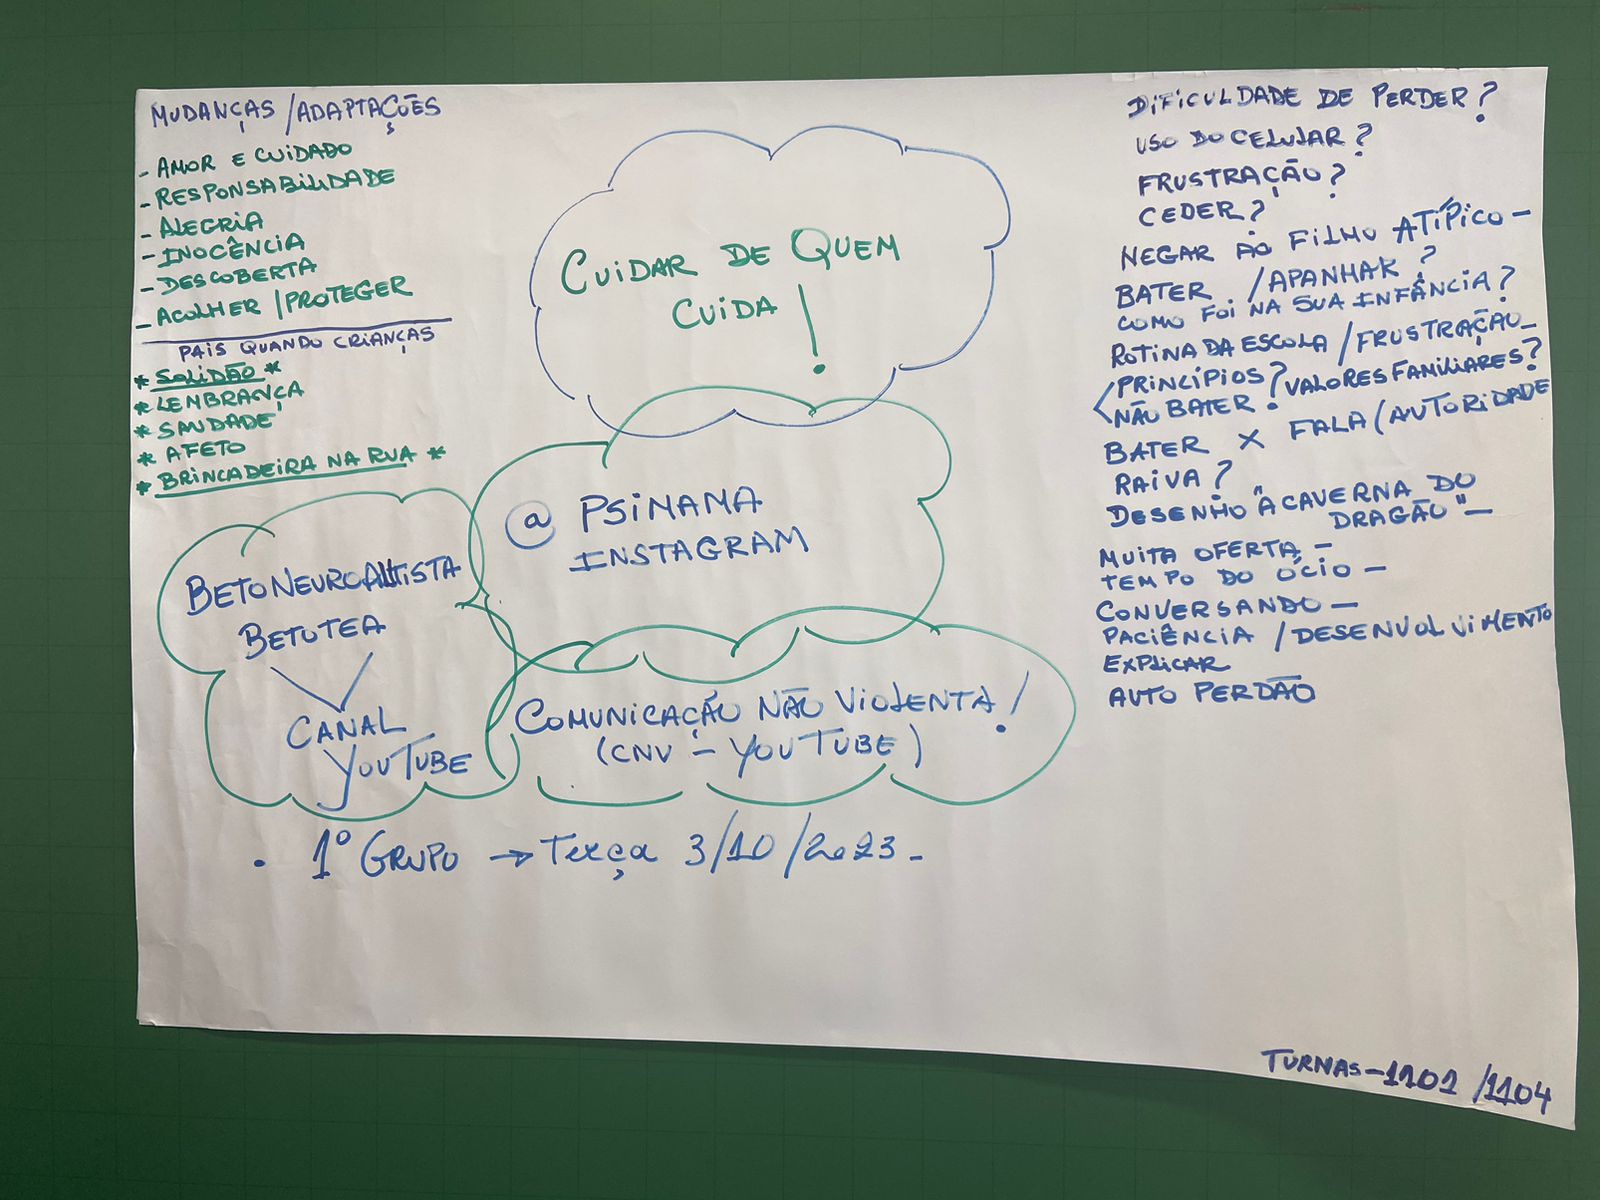 MUDANÇAS / ADAPTAÇÕES
- AMOR E CUIDADO
- RESPONSABILIDADE
- ALEGRIA
- INOCÊNCIA
- DESCOBERTA
- ACOLHER / PROTEGER
PAIS QUANDO CRIANÇAS
* SOLIDÃO *
* LEMBRANÇA
* SAUDADE
* AFETO
* BRINCADEIRA NA RUA *
CUIDAR DE QUEM
CUIDA !
@ PSINAMA
INSTAGRAM
BETONEUROAUTISTA
BETOTEA
CANAL
YOUTUBE
COMUNICAÇÃO NÃO VIOLENTA !
(CNV - YOUTUBE)
. 1º GRUPO → Terça 3/10/2023 -
DIFICULDADE DE PERDER ?
USO DO CELULAR ?
FRUSTRAÇÃO ?
CEDER ?
NEGAR AO FILHO ATÍPICO -
BATER / APANHAR ?
COMO FOI NA SUA INFÂNCIA ?
ROTINA DA ESCOLA / FRUSTRAÇÃO -
PRINCÍPIOS ? VALORES FAMILIARES ?
NÃO BATER ?
BATER X FALA (AUTORIDADE
RAIVA ?
DESENHO "A CAVERNA DO
DRAGÃO" -
MUITA OFERTA -
TEMPO DO ÓCIO -
CONVERSANDO -
PACIÊNCIA / DESENVOLVIMENTO
EXPLICAR
AUTO PERDÃO
TURMAS - 1101 / 1104